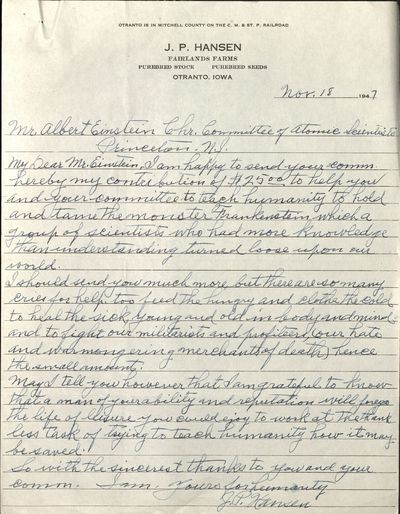 OTRANTO IS IN MITCHELL COUNTY ON THE C. M. & ST. P. RAILROAD
J. P. HANSEN
FAIRLANDS FARMS
PUREBRED STOCK PUREBRED SEEDS
OTRANTO, IOWA
Nov. 18 1947
Mr. Albert Einstein Chr. Committee of Atomic Scientists
Princeton. N.J.
My Dear Mr. Einstein, I am happy to send your comm.
hereby my contribution of $25.00 to help you
and your committee to teach humanity to hold
and tame the monster Frankenstein which a
group of scientists who had more knowledge
than understanding turned loose upon our
world.
I should send you much more, but there are so many
cries for help, too feed the hungry and clothe the cold
to heal the sick, young and old in body and mind -
and to fight our militarists and profiteers, (our hate
and warmongering merchants of death) hence
the small amount.
May I tell you however that I am grateful to know
that a man of your ability and reputation will forego
the life of leisure you could enjoy to work at the thank
less task of trying to teach humanity how it may
be saved.
So with the sincerest thanks to you and your
comm. I am. Yours for humanity
J.P. Hansen